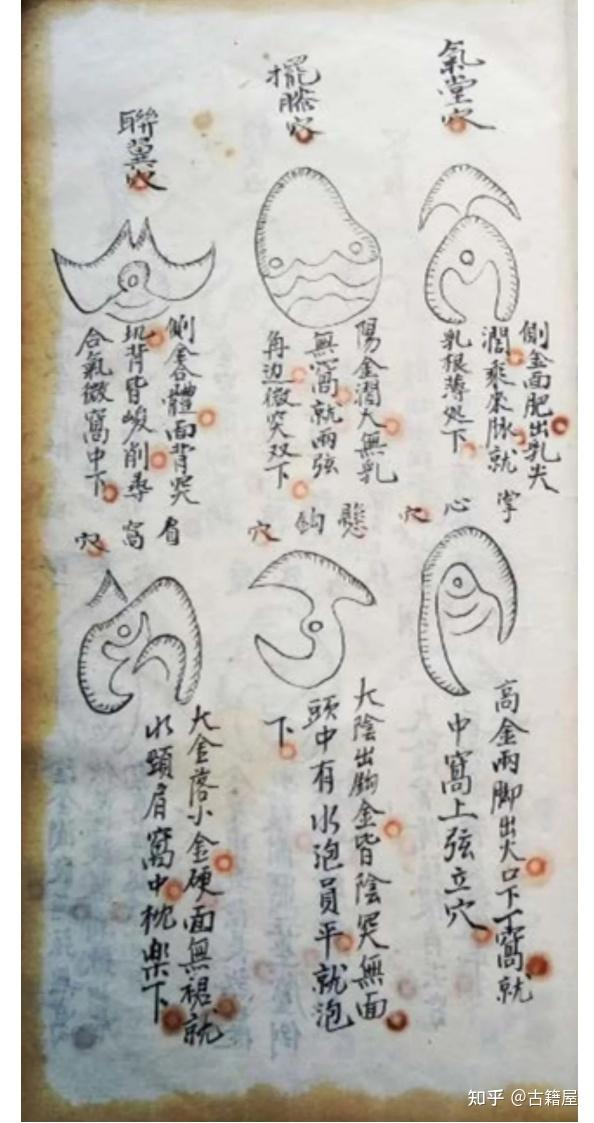 氣堂穴
側金面肥出乳尖
濶乘來脉就
乳根薄处下
擺膝穴
陽金濶大無乳
無窩就両弦
角边微突双下
聯翼穴
側金体面背突
背皆峻削乘
合氣微窩中下
掌心穴
高金両脚出火口下一窩就
中窩上弦立穴
懸鈎穴
太陰出鈎金皆陰突無面
頭中有水泡員平就泡
下
肩窩穴
大金落小金硬面無裙就
水頭肩窩中枕樂下
知乎 @古籍屋